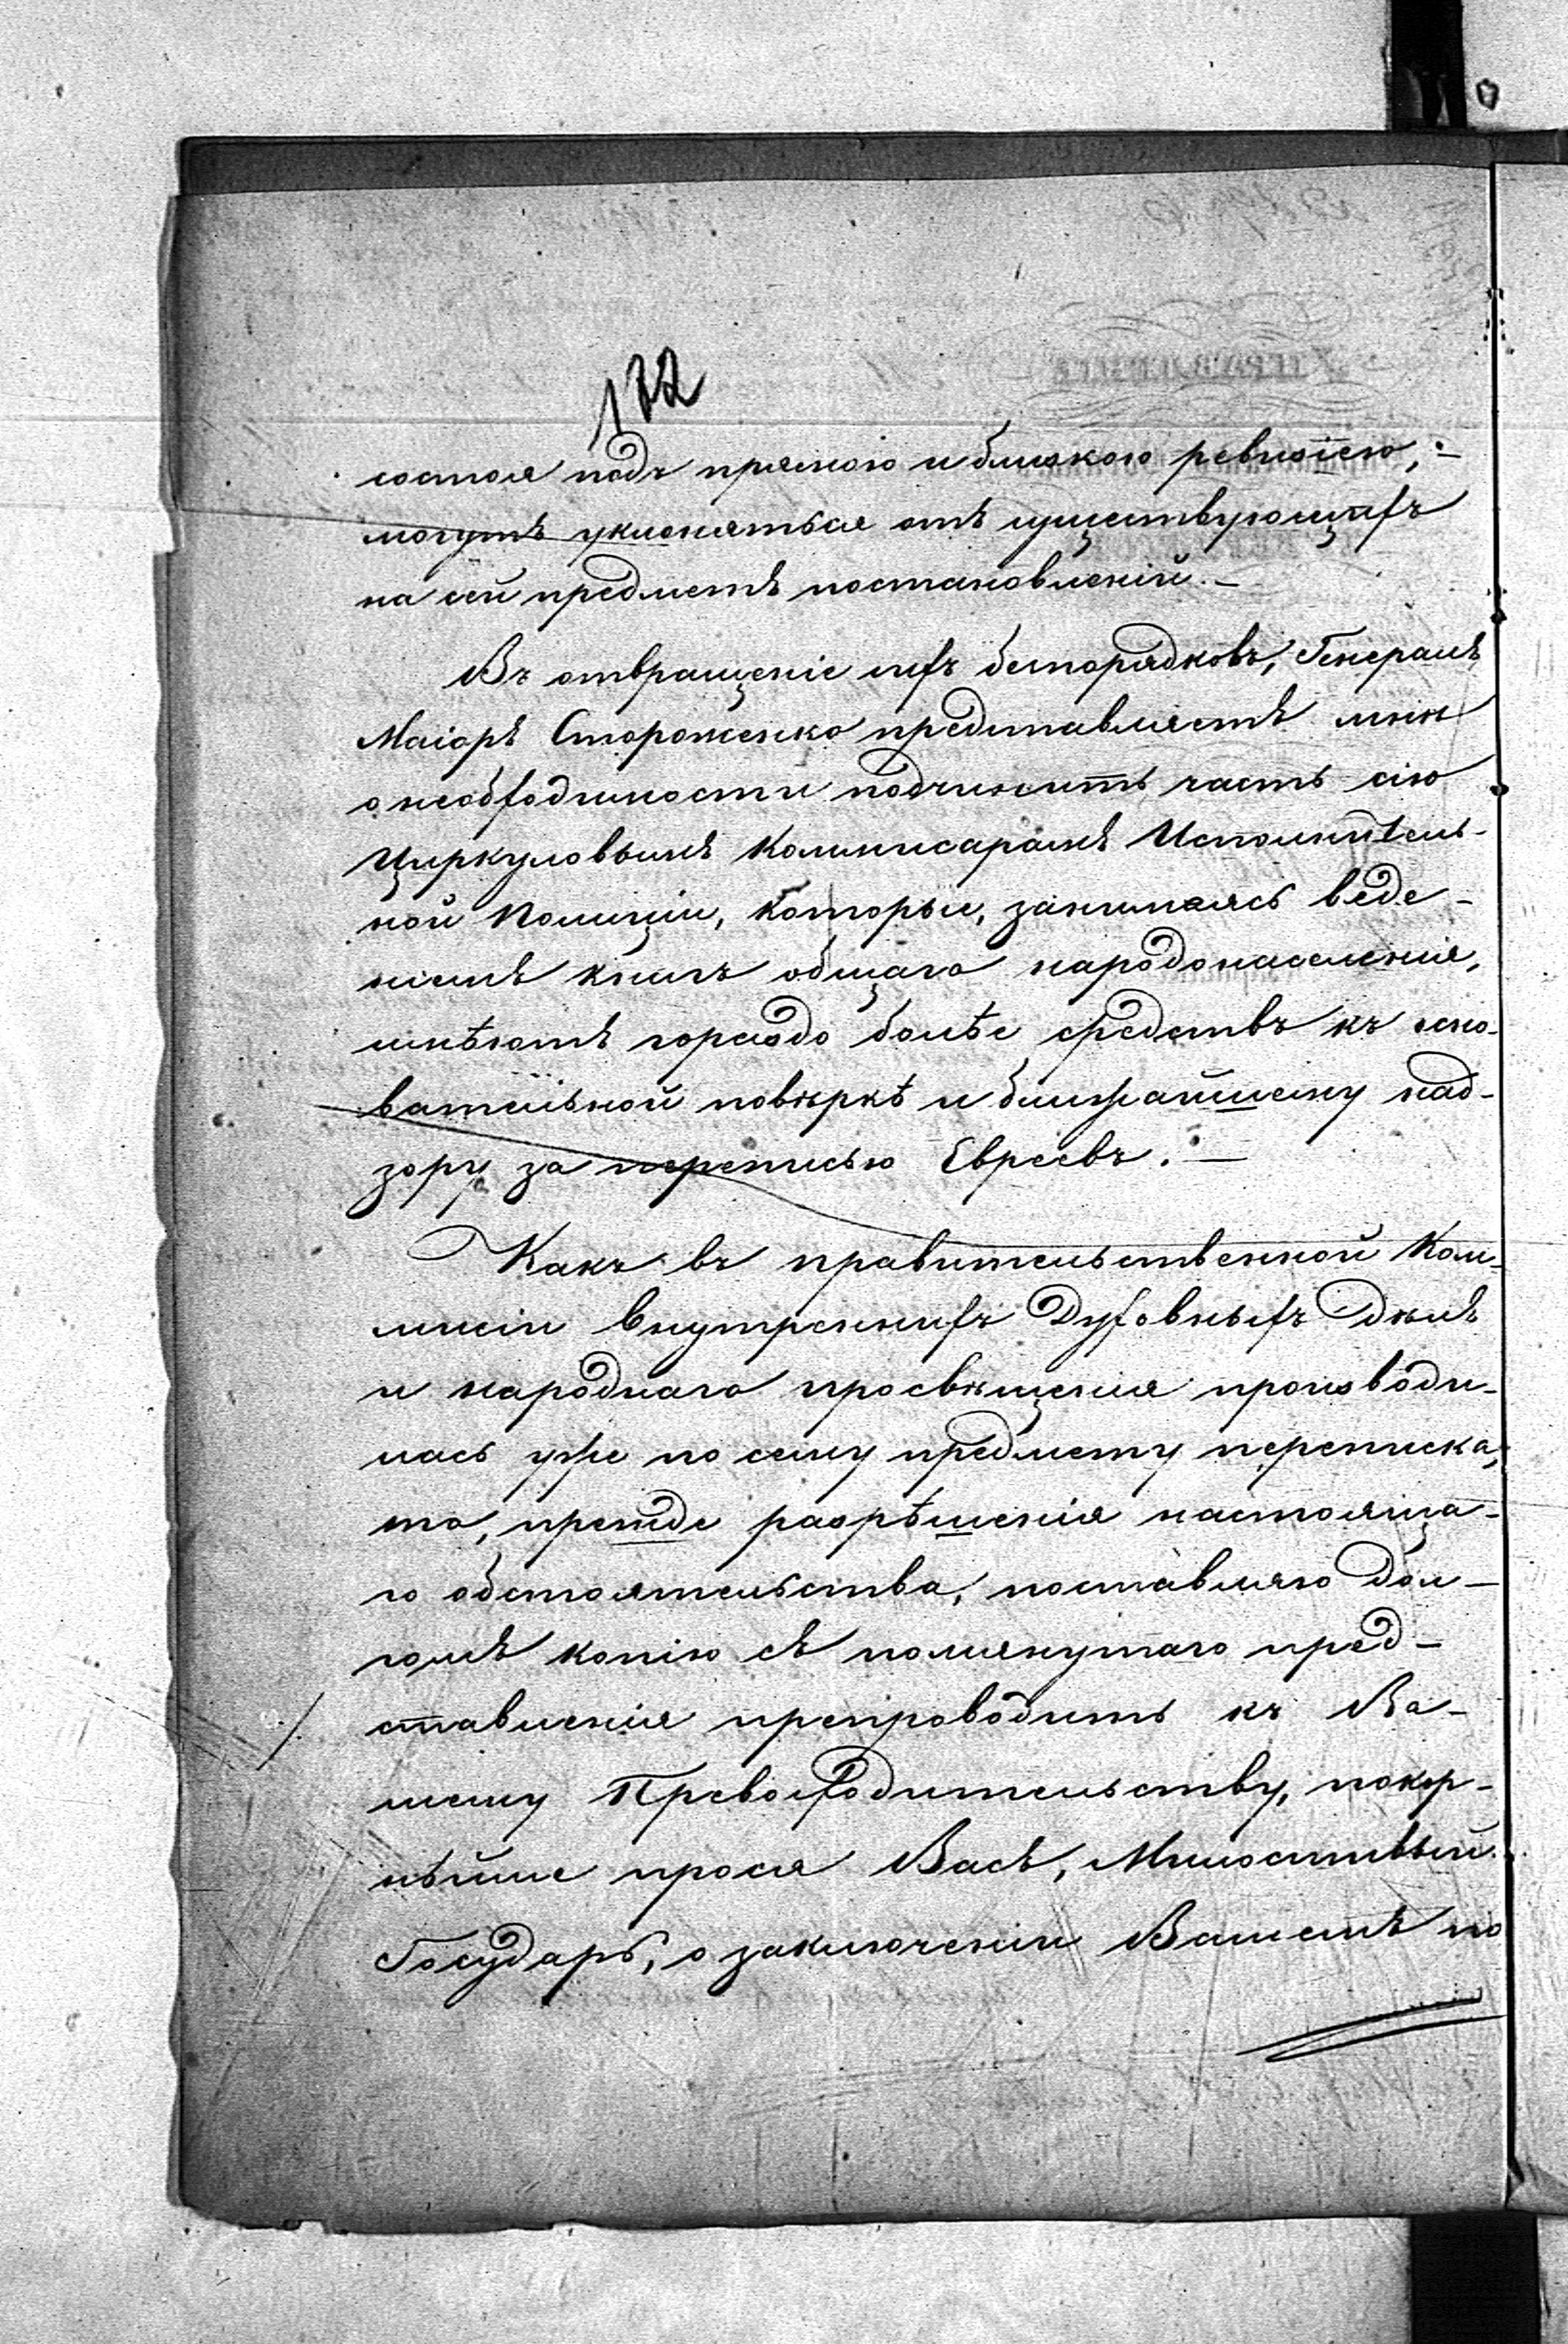 122
состоя подъ прямою и близкою ревизіею,
могутъ уклоняться отъ существующихъ
на сей предметъ постановленій. —
Въ отвращеніе сихъ безпорядковъ, Генералъ
Маіоръ Стороженко представляетъ мнѣ
о необходимости подчинить часть сію
Циркуловымъ Коммисарамъ Исполнитель-
ной Полиціи, которые, занимаясь веде-
ніемъ книгъ общаго народонаселенія,
имѣютъ гораздо болѣе средствъ къ осно-
вательной повѣркѣ и ближайшему над-
зору за переписью Евреевъ. —
Какъ въ правительственной Ком-
мисіи внутреннихъ Духовныхъ дѣлъ
и народнаго просвѣщенія производи-
лась уже по сему предмету переписка,
то, прежде разрѣшенія настояща-
го обстоятельства, поставляю дол-
гомъ копію съ помянутаго пред-
ставленія препроводить къ Ва-
шему Превосходительству, покор-
нѣйше прося Васъ, Милостивый
Государь, о заключеніи Вашемъ по